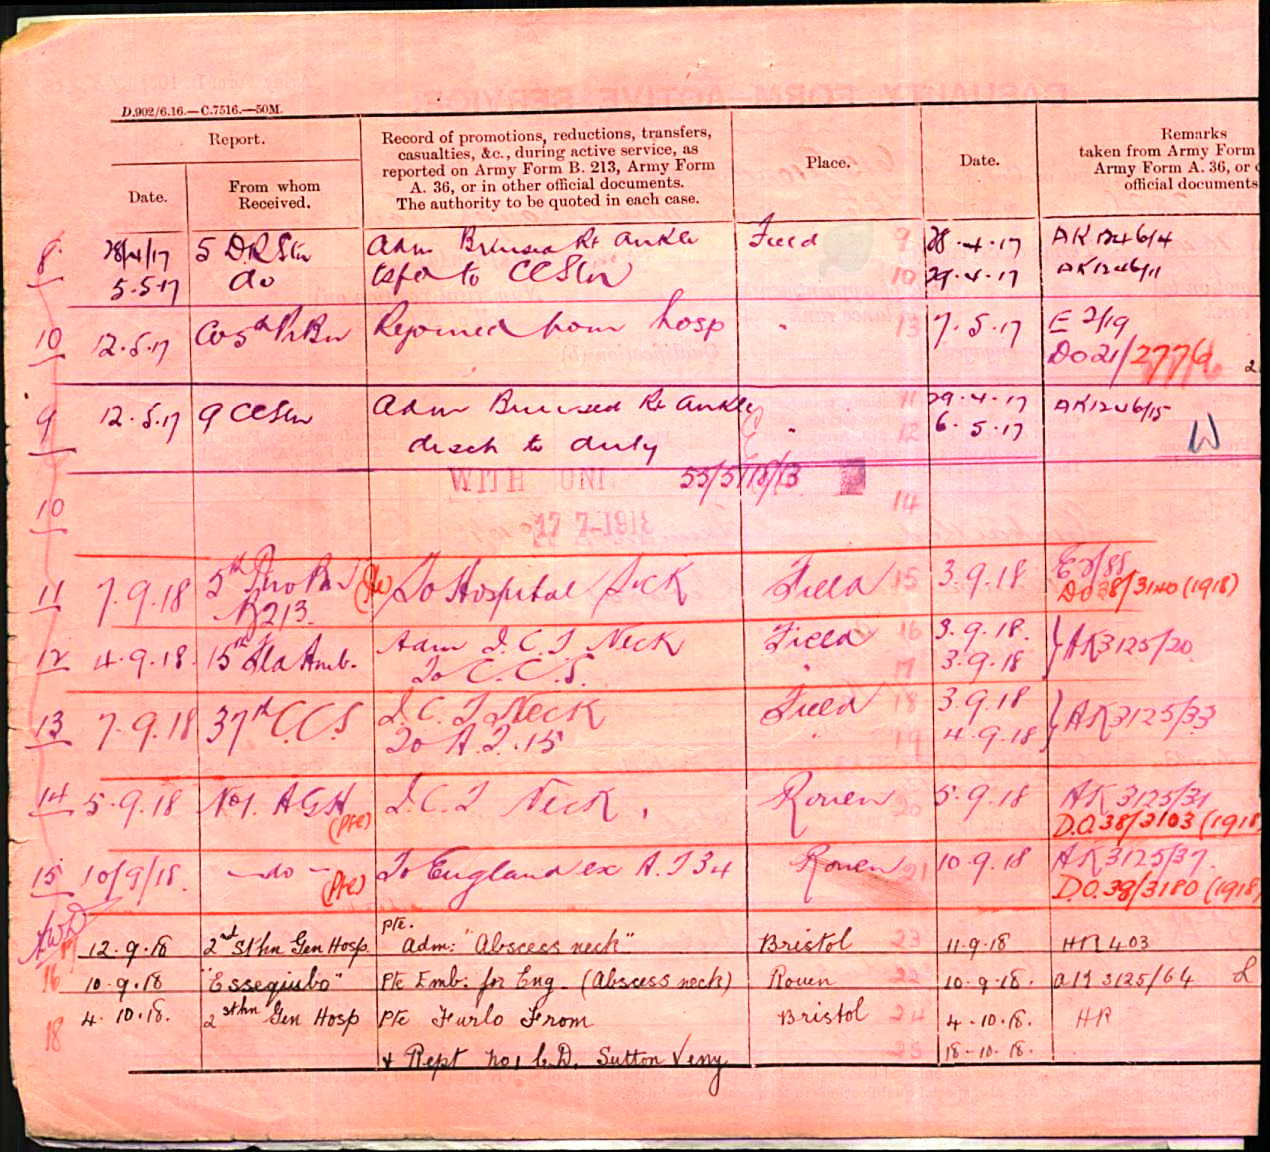 D.902/6.16.—C.7516.—50M.
Report.
Record of promotions, reductions, transfers,
casualties, &c., during active service, as
reported on Army Form B. 213, Army Form
A. 36, or in other official documents.
The authority to be quoted in each case.
Place.
Date.
Remarks
taken from Army Form
Army Form A. 36, or
official documents
Date.
From whom
Received.
8 28/4/17 5 DRStn Adm Bruised Rt Ankle Field 9 28.4.17 AK1246/4
5.5.17 do tsfd to CCStn 10 29.4.17 AK1246/11
10 12.5.17 Co 5th Pr Bn Rejoined from hosp 13 7.5.17 E 2/19
DO21/2776
9 12.5.17 9 CCStn Adm Bruised Rt Ankle 11 29.4.17 AK1246/15
disch to duty 12 6.5.17 W
WITH UNI 55/5/18/13
10 14
17 7-1918
11 7.9.18 5th Pno Bn To Hospital Sick Field 15 3.9.18
B213. DO38/3140 (1918)
12 4.9.18. 15th Fld Amb. Adm I.C.T Neck Field 16 3.9.18. AK3125/20
To C.C.S. 17 3.9.18
13 7.9.18 37th C.C.S I.C.T Neck Field 18 3.9.18 AK3125/33
To A.T.15 19 4.9.18
14 5.9.18 No1. A G H I.C.T Neck. Rouen 20 5.9.18 AK3125/31
(Pte) D.O.38/3103 (1918
15 10/9/18. —do— To England ex A.T 34 Rouen 21 10.9.18 AK3125/37.
(Pte) D.O.39/3180 (1918
Pte.
17 12.9.18 2nd Sthn Gen Hosp. Adm: "Abscess neck" Bristol 23 11.9.18 HR 403
16 10.9.18 "Essequibo" Pte Emb: for Eng. (Abscess neck) Rouen 22 10.9.18. AK 3125/64
18 4.10.18. 2 Sthn Gen Hosp Pte Furlo From Bristol 24 4.10.18. HR
& Rept No1 C.D. Sutton Veny 25 18.10.18.